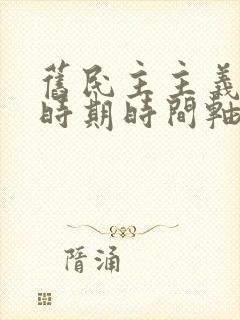 舊民主主義
時期時間軸
隋涌